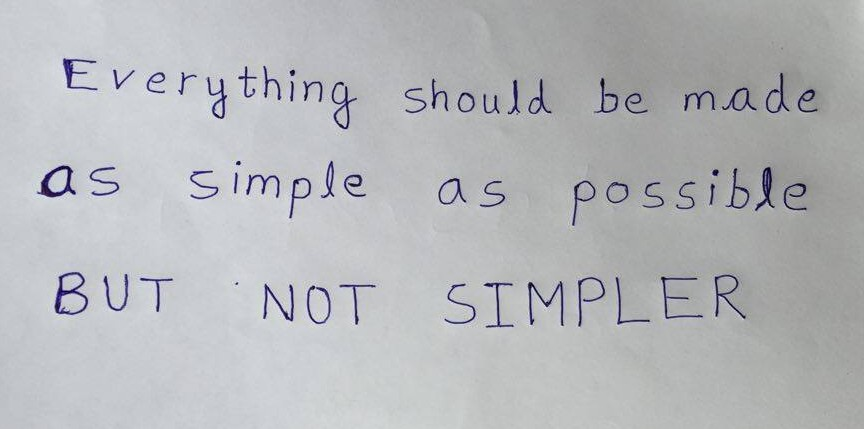 Everything should be made
as simple as possible
BUT NOT SIMPLER